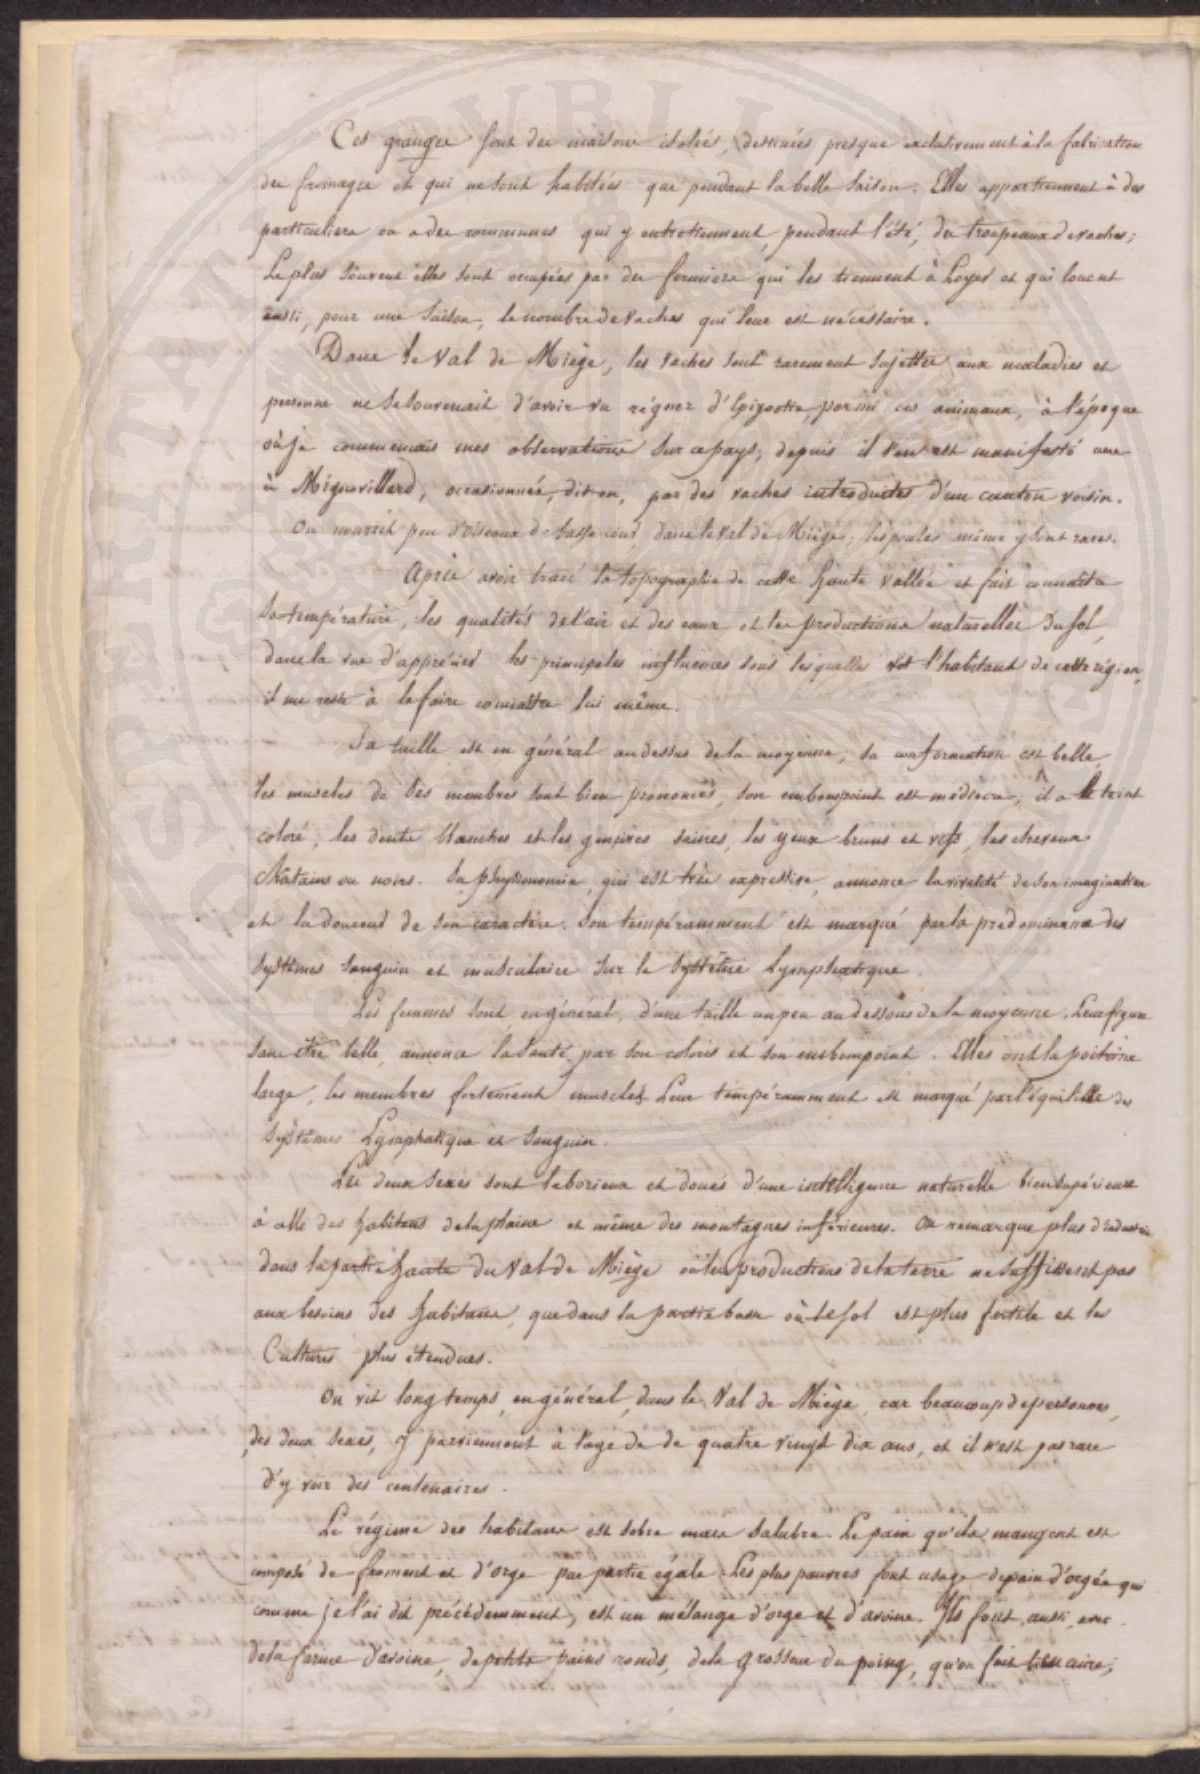 Ces granges sont des maisons isolées, destinées presque exclusivement à la fabrication
des fromages et qui ne sont habitées que pendant la belle saison. Elles appartiennent à des
particuliers ou a des communes qui y entretiennent, pendant l'été, des troupeaux de vaches;
Le plus souvent elles sont occupées par des fermiers qui les tiennent à Loyer et qui louent
aussi, pour une saison, le nombre de vaches qui leur est nécessaire.
Dans le Val de Miège, les vaches sont rarement sujettes aux maladies et
personne ne se souvenait d'avoir vu régner d'Epizootie, parmi ces animaux, à l'époque
où je commençais mes observations sur ce pays; depuis il s'en est manifesté une
à Mignovillard, occasionnée, dit-on, par des vaches introduites d'un canton voisin.
On nourrit peu d'oiseaux de basse cour, dans le Val de Miège; les poules même y sont rares.
Après avoir tracé la topographie de cette haute vallée et fait connaitre
sa température, les qualités de l'air et des eaux et les productions naturelles du sol,
dans la vue d'apprécier les principales influences sous lesquelles vit l'habitant de cette région,
il me reste à le faire connaître lui même.
Sa taille est en général au dessus de la moyenne; sa conformation est belle,
les muscles de ses membres sont bien prononcés, son embonpoint est médiocre; il a le teint
coloré, les dents blanches et les gencives saines, les yeux bruns et vifs, les cheveux
châtains ou noirs. Sa physionomie, qui est très expressive, annonce la vivacité de son imagination
et la douceur de son caractère. Son tempéramment est marqué par la prédominance des
systêmes sanguin et musculaire sur le systême Lymphatique.
Les femmes sont en général, d'une taille un peu au dessous de la moyenne. Leur figure
sans être belle, annonce la santé, par son coloris et son embonpoint. Elles ont la poitrine
large, les membres fortement musclés. Leur tempéramment est marqué par l'équilibre des
systêmes Lymphatique et sanguin.
Les deux sexes sont laborieux et doués d'une intelligence naturelle bien supérieure
à celle des habitans de la plaine et même des montagnes inférieures. On remarque plus d'industrie
dans la partie haute du Val de Miège où les productions de la terre ne suffisent pas
aux besoins des habitans, que dans la partie basse où le sol est plus fertile et les
Cultures plus étendues.
On vit long temps, en général, dans le Val de Miège, car beaucoup de personnes,
des deux sexes, y parviennent à l'age de de quatre vingt dix ans, et il n'est pas rare
d'y voir des centenaires.
Le régime des habitans est sobre mais salubre. Le pain qu'ils mangent est
composé de froment et d'orge par partie égale. Les plus pauvres font usage de pain d'orgée qui
comme je l'ai dit précédemment, est un mélange d'orge et d'avoine. Ils font, aussi, avec
de la farine d'avoine, de petits pains ronds, de la grosseur du poing, qu'on fait bien cuire;